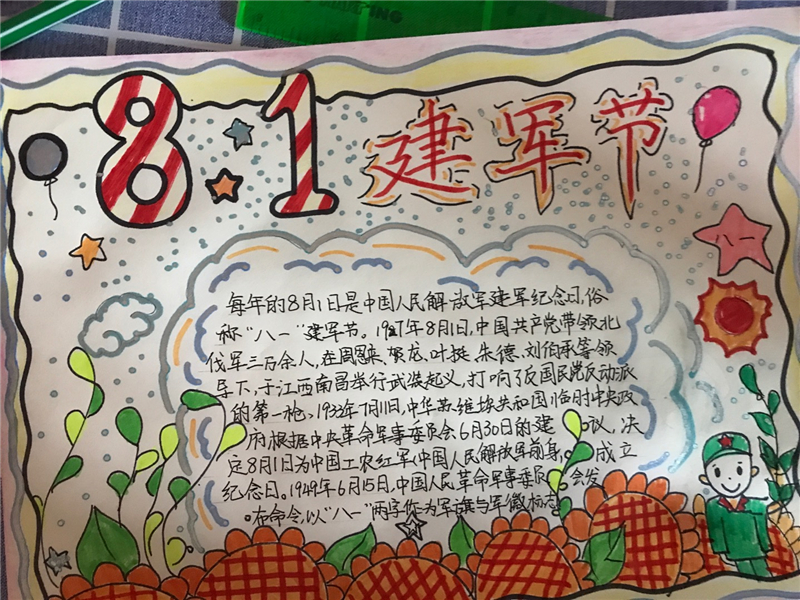 8.1建军节
八一
每年的8月1日是中国人民解放军建军纪念日,俗
称"八一"建军节。1927年8月1日,中国共产党带领北
伐军三万余人,在周恩来、贺龙、叶挺、朱德、刘伯承等领
导下,于江西南昌举行武装起义,打响了反国民党反动派
的第一枪。1933年7月11日,中华苏维埃共和国临时中央政
府根据中央革命军事委员会6月30日的建议,决
定8月1日为中国工农红军(中国人民解放军前身)成立
纪念日。1949年6月15日,中国人民革命军事委员会发
布命令,以"八一"两字作为军旗与军徽标志